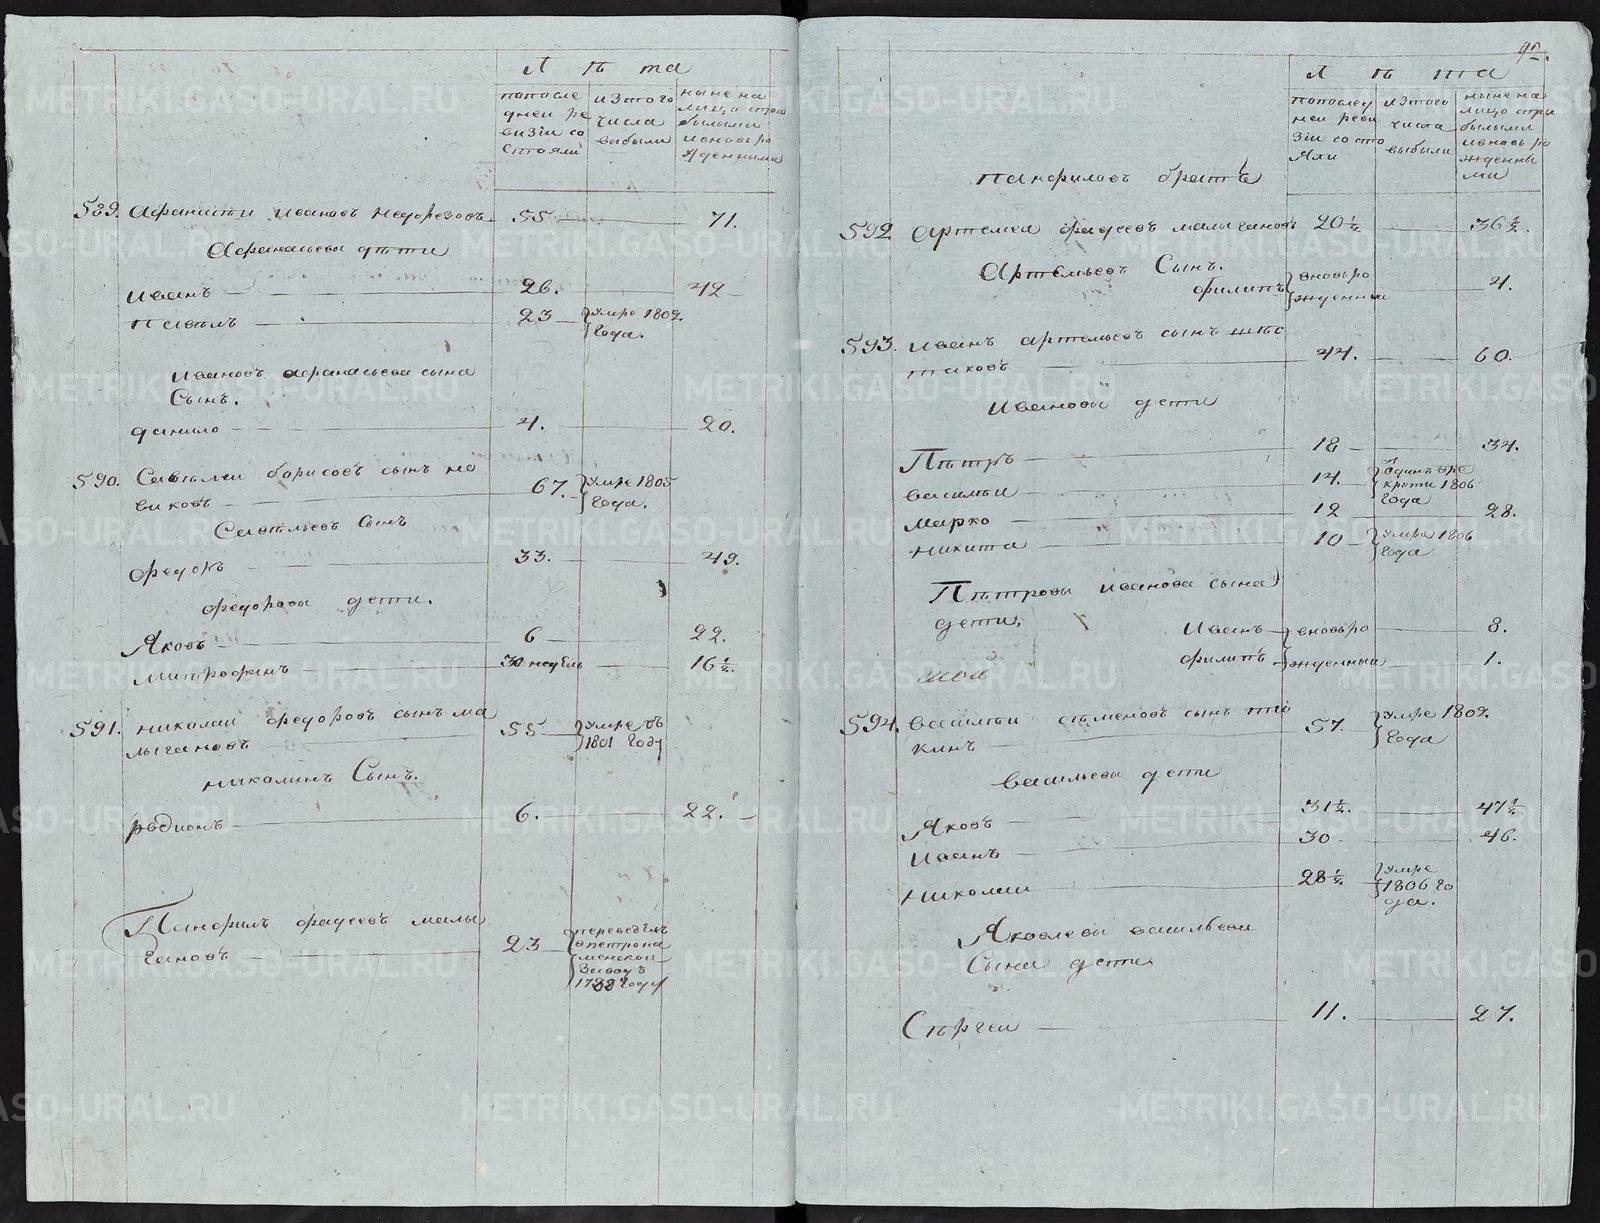 Л ѣ та
попосле
дней ре
визiи со
стояли
изтого
числа
выбыли
ныне на
лицо спри
былыми
иновь ро
жденными
589. Афанасiи ивановъ недорезовъ 55 71.
Афанасьевы дѣти
иванъ 26. 42
павелъ 23 умре 1802.
года.
ивановъ афанасьева сына
Сынъ.
данило 4. 20.
590. Савелеи борисовъ сынъ но
виковъ 67. умре 1805
года.
Савельевъ Сынъ
федоръ 33. 49.
федоровы дети.
Яковъ 6 22.
митрофанъ 30 недѣль 16 1/2.
591. николаи федоровъ сынъ ма
лыгановъ 55 умре въ
1801 году
николинъ Сынъ.
родионъ 6. 22.
Панфилъ фадеевъ малы
гановъ 23 переведенъ
впетрока
менской
заводъ
1788 году
92.
Л ѣ та
попослед
ней реви
зiи состо
яли
изтого
числа
выбыли
ныне на
лицо спри
былыми
иновь ро
жденны
ми
панфиловъ братъ
592 Артемеи фадеевъ малыгановъ 20 1/2 36 1/2.
Артемьевъ Сынъ.
филипъ вновьро
жденныи 4.
593. Иванъ артемьевъ сынъ шес
таковъ 44. 60.
Ивановы дети
Пѣтръ 18 34.
василеи 14. Отданъ вре
круты 1806
года
марко 12 28.
никита 10 умре 1806
года
Пѣтровы иванова сына
дети,
Иванъ вновьро 8.
филипъ жденныи 1.
594. василеи семеновъ сынъ тю
кинъ 57. умре 1802.
года
васильевы дети
Яковъ 31 1/2. 47 1/2.
Иванъ 30 46.
николаи 28 1/2. умре
1806 го
да.
Яковлевы васильева
Сына дети
Сѣргеи 11. 27.
METRIKI.GASO-URAL.RU